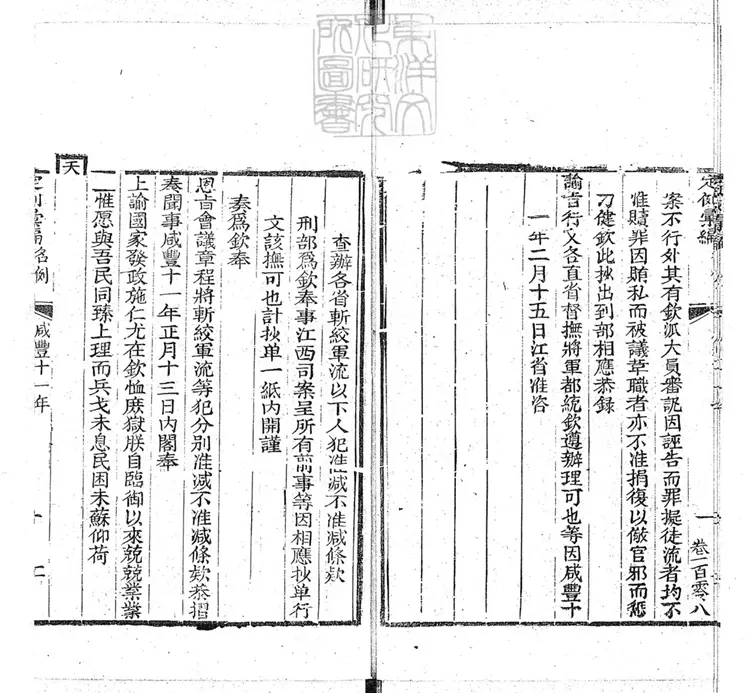 東洋文
化研究
所圖書
定例彙編
卷一百零八
案不行外其有欽派大員審訊因誣告而罪擬徒流者均不
准贖罪因賄私而被議革職者亦不准捐復以儆官邪而懲
刁健欽此抄出到部相應恭錄
諭旨行文各直省督撫將軍都統欽遵辦理可也等因咸豐十
一年二月十五日江省准咨
查辦各省斬絞軍流以下人犯准減不准減條款
刑部為欽奉事江西司案呈所有前事等因相應抄单行
文該撫可也計抄单一紙內開謹
奏爲欽奉
恩旨會議章程將斬絞軍流等犯分別准減不准減條欵恭摺
奏聞事咸豐十一年正月十三日內閣奉
上諭國家發政施仁尤在欽恤庶獄朕自臨御以來兢兢業業
惟愿與吾民同臻上理而兵戈未息民困未蘇仰荷
天
定例彙編 名例
咸豐十一年
十二